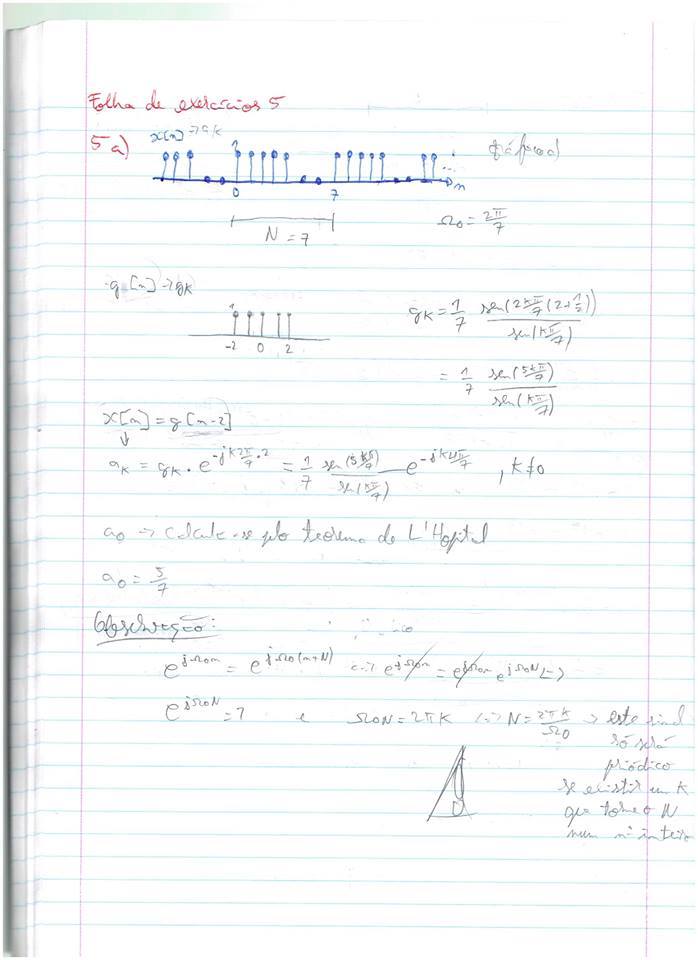 Folha de exercícios 5
5 a) x[n] → ak
1
0 7 n
N = 7
Ω0 = 2π/7
g[n] → gk
1
-2 0 2
gk = 1/7 sen(2kπ/7 (2+1/2)) / sen(kπ/7)
= 1/7 sen(5kπ/7) / sen(kπ/7)
x[n] = g[n-2]
↓
ak = gk · e^(-jk 2π/7 · 2) = 1/7 sen(5kπ/7) / sen(kπ/7) e^(-jk4π/7) , k≠0
a0 → calcula-se pelo teorema de L'Hopital
a0 = 5/7
Observação:
e^(jΩ0n) = e^(jΩ0(n+N)) <=> e^(jΩ0n) = e^(jΩ0n) e^(jΩ0N) <=>
e^(jΩ0N) = 1 e Ω0N = 2πk <=> N = 2πk/Ω0 → este sinal
só será
priódico
se existir um k
que torne o N
num nº inteiro